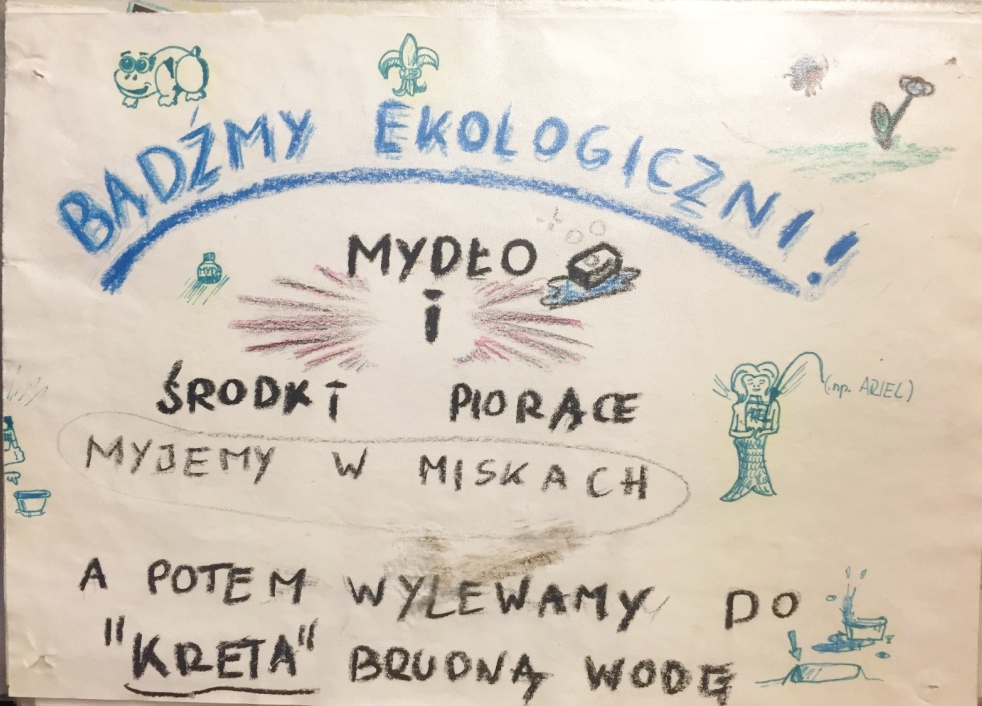 BĄDŹMY EKOLOGICZNI!!
MYDŁO
i
ŚRODKI PIORĄCE
(np. ARIEL)
MYJEMY W MISKACH
A POTEM WYLEWAMY DO
"KRETA" BRUDNĄ WODĘ